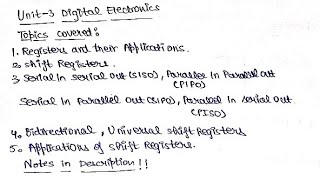 Unit-3 Digital Electronics
Topics covered:
1. Registers and their Applications.
2. Shift Registers.
3 Serial in serial out (SISO), Parallel in Parallel out
(PIPO)
Serial in Parallel out (SIPO), Parallel in serial out
(PISO)
4. Bidirectional, Universal shift Registers
5. Applications of shift Registers.
Notes in Description!!